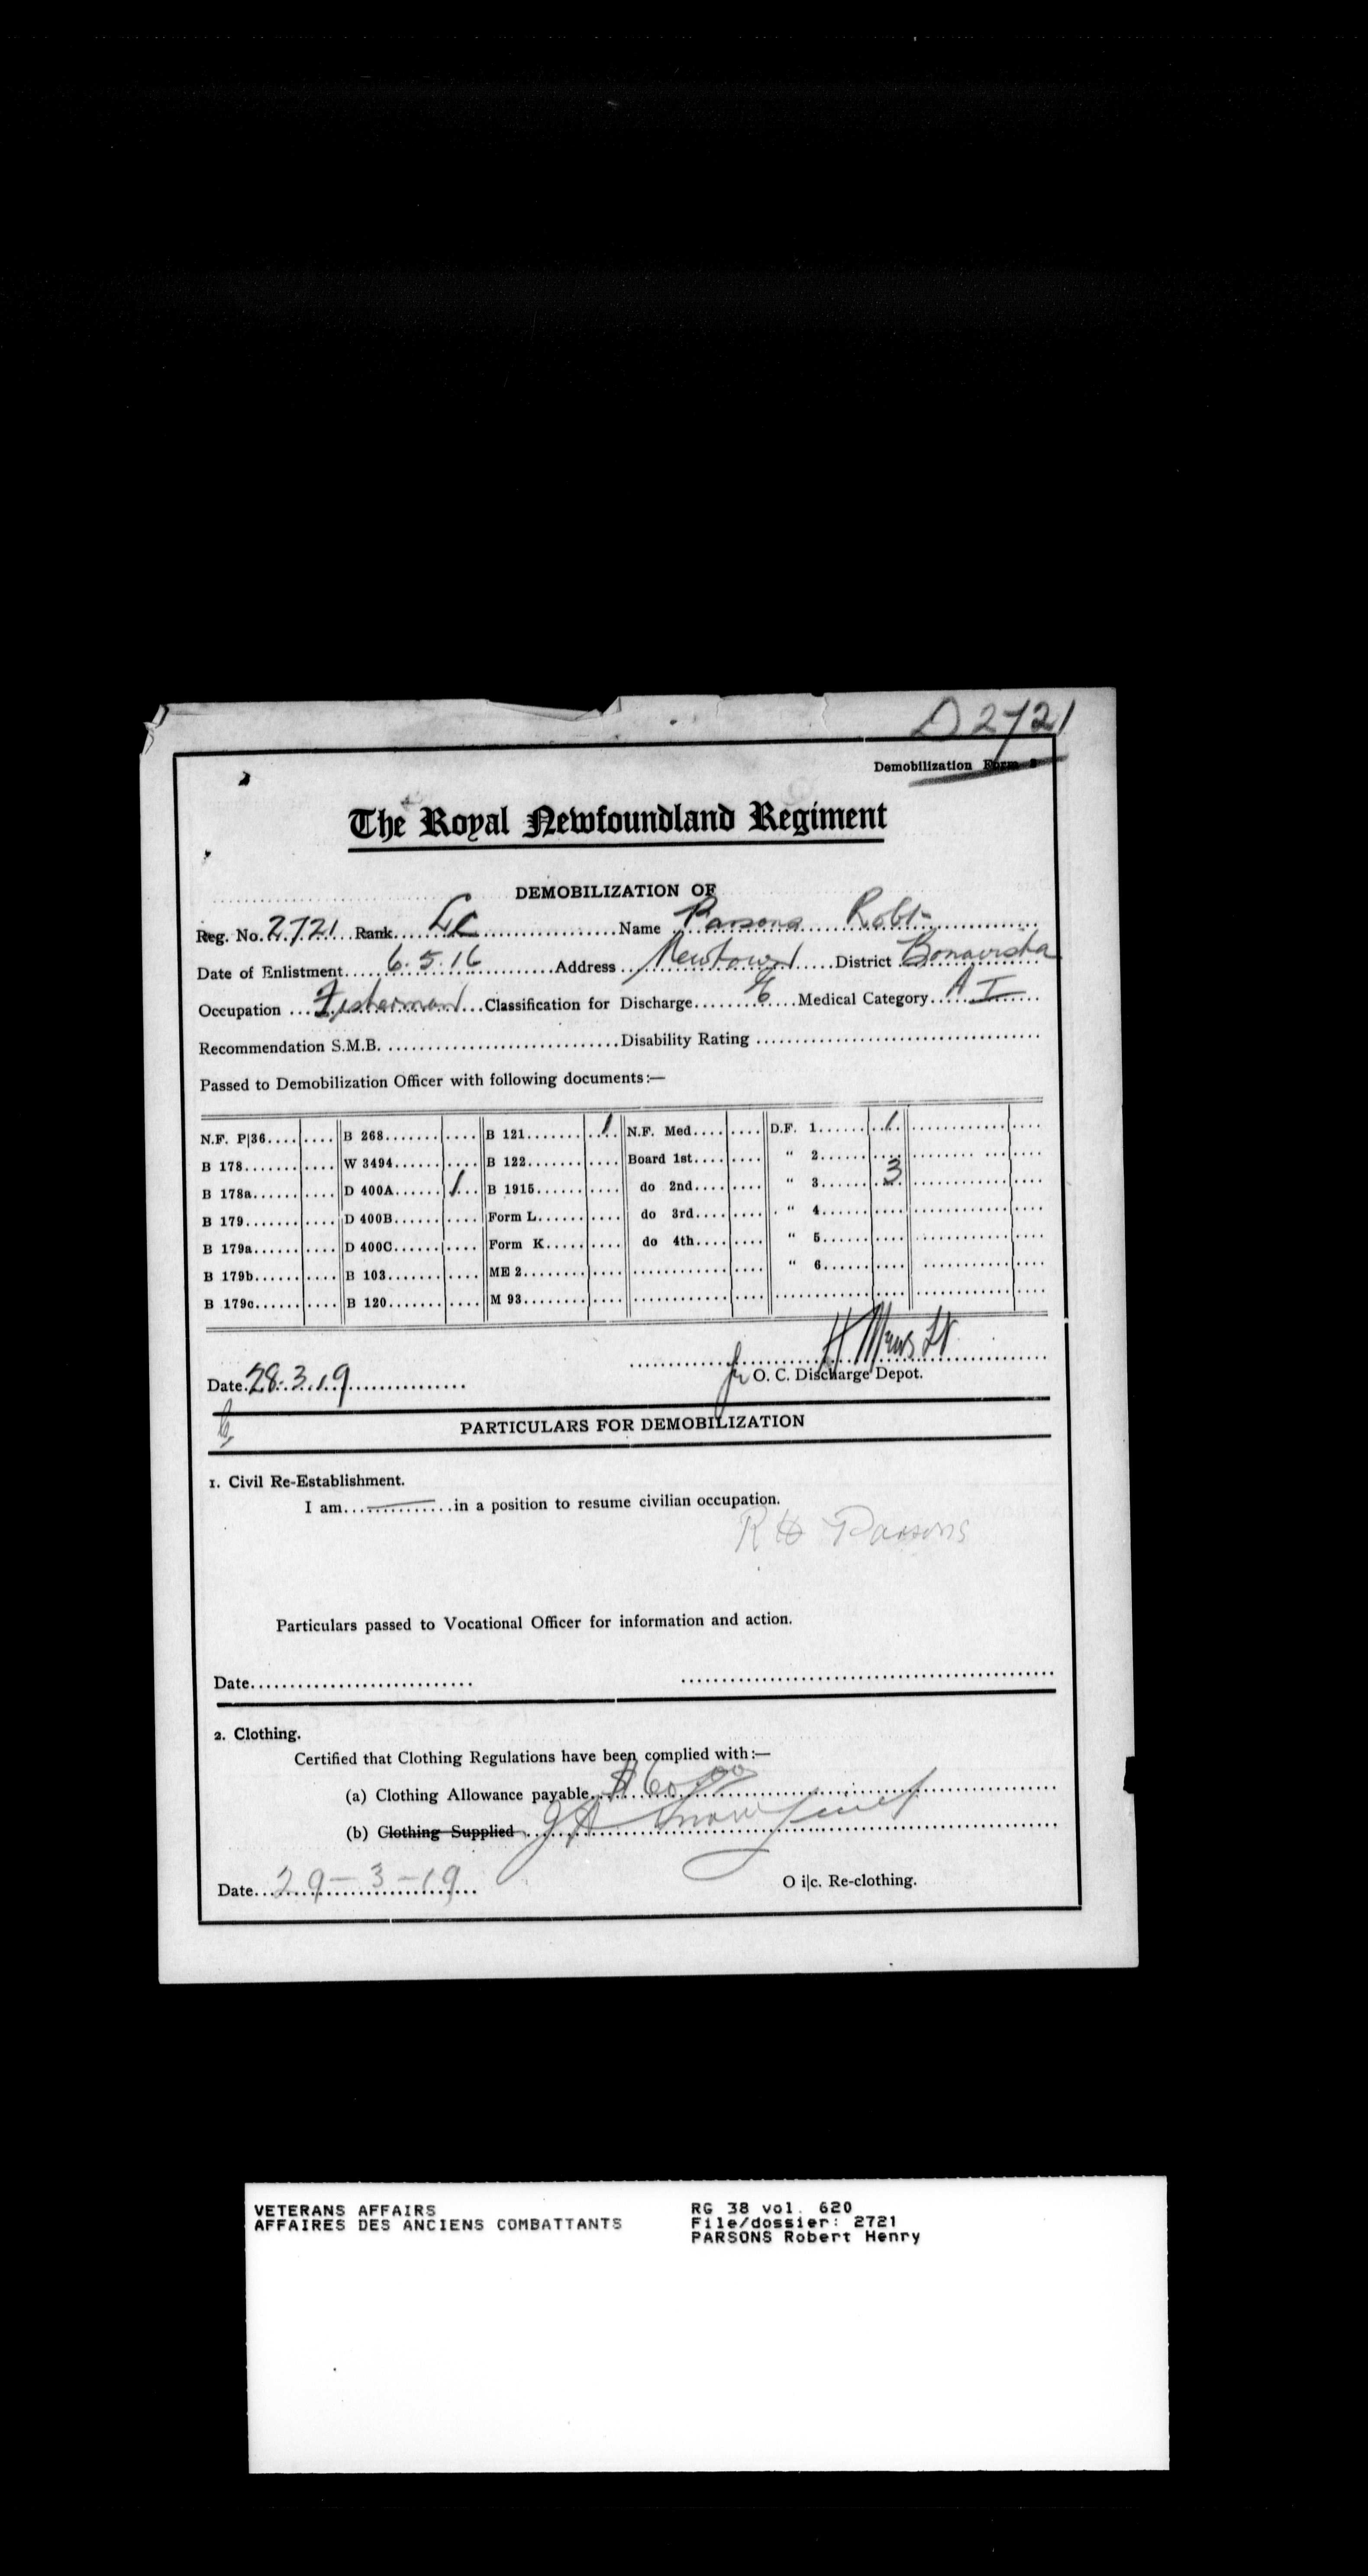 D 2721
Demobilization Form
The Royal Newfoundland Regiment
DEMOBILIZATION OF
Reg. No. 2721 Rank L/C Name Parsons Robt
Date of Enlistment 6.5.16 Address Newtown District Bonavista
Occupation Fisherman Classification for Discharge Medical Category A I
Recommendation S.M.B. Disability Rating
Passed to Demobilization Officer with following documents:—
N.F. P|36 B 268 B 121 1 N.F. Med. D.F. 1 1
B 178 W 3494 B 122 Board 1st " 2
B 178a D 400A 1 B 1915 do 2nd " 3 3
B 179 D 400B Form L do 3rd " 4
B 179a D 400C Form K do 4th " 5
B 179b B 103 ME 2 " 6
B 179c B 120 M 93
H Mews Lt
Date 28.3.19 for O. C. Discharge Depot.
PARTICULARS FOR DEMOBILIZATION
1. Civil Re-Establishment.
I am in a position to resume civilian occupation.
R H Parsons
Particulars passed to Vocational Officer for information and action.
Date
2. Clothing.
Certified that Clothing Regulations have been complied with:—
(a) Clothing Allowance payable $60.00
(b) Clothing Supplied
Date 29-3-19 O i|c. Re-clothing.
VETERANS AFFAIRS RG 38 vol. 620
AFFAIRES DES ANCIENS COMBATTANTS File/dossier: 2721
PARSONS Robert Henry